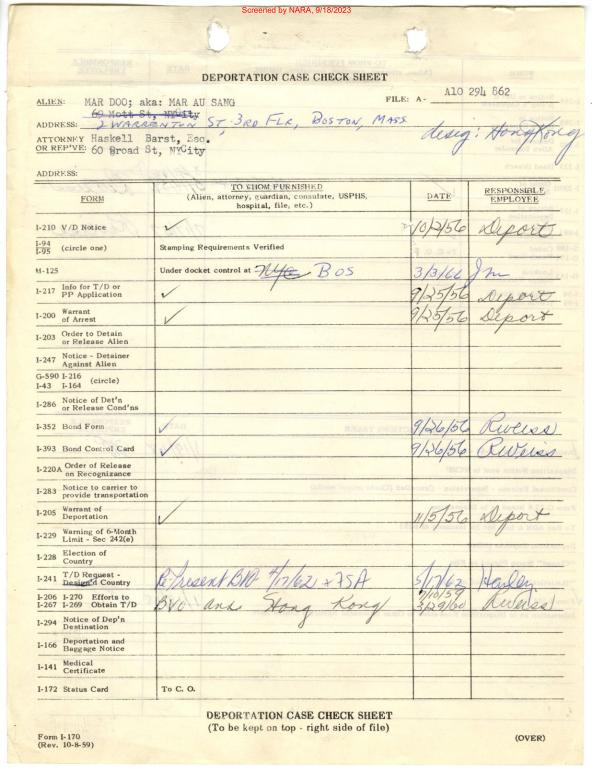 Screened by NARA, 9/18/2023
DEPORTATION CASE CHECK SHEET
ALIEN: MAR DOO; aka: MAR AU SANG FILE: A- A10 294 862
69 Mott St, NYCity
ADDRESS: 2 WARRENTON ST 3RD FLR, BOSTON, MASS desig: Hong Kong
ATTORNEY Haskell Barst, Esq.
OR REP'VE: 60 Broad St, NYCity
ADDRESS:
FORM TO WHOM FURNISHED (Alien, attorney, guardian, consulate, USPHS, hospital, file, etc.) DATE RESPONSIBLE EMPLOYEE
I-210 V/D Notice ✓ 10/2/56 Deport
I-94 I-95 (circle one) Stamping Requirements Verified
M-125 Under docket control at NYC BOS 3/3/66 Jm
I-217 Info for T/D or PP Application ✓ 9/25/56 Deport
I-200 Warrant of Arrest ✓ 9/25/56 Deport
I-203 Order to Detain or Release Alien
I-247 Notice - Detainer Against Alien
G-590 I-216 I-43 I-164 (circle)
I-286 Notice of Det'n or Release Cond'ns
I-352 Bond Form ✓ 9/26/56 RWeiss
I-393 Bond Control Card ✓ 9/26/56 RWeiss
I-220A Order of Release on Recognizance
I-283 Notice to carrier to provide transportation
I-205 Warrant of Deportation ✓ 11/5/56 Deport
I-229 Warning of 6-Month Limit - Sec 242(e)
I-228 Election of Country
I-241 T/D Request - Design'd Country Re Present BVO 4/17/62 + 7SA 5/17/62
I-206 I-270 Efforts to 7/10/59
I-267 I-269 Obtain T/D BVO and Hong Kong 3/29/60 RWeiss
I-294 Notice of Dep'n Destination
I-166 Deportation and Baggage Notice
I-141 Medical Certificate
I-172 Status Card To C. O.
DEPORTATION CASE CHECK SHEET
(To be kept on top - right side of file)
Form I-170
(Rev. 10-8-59) (OVER)